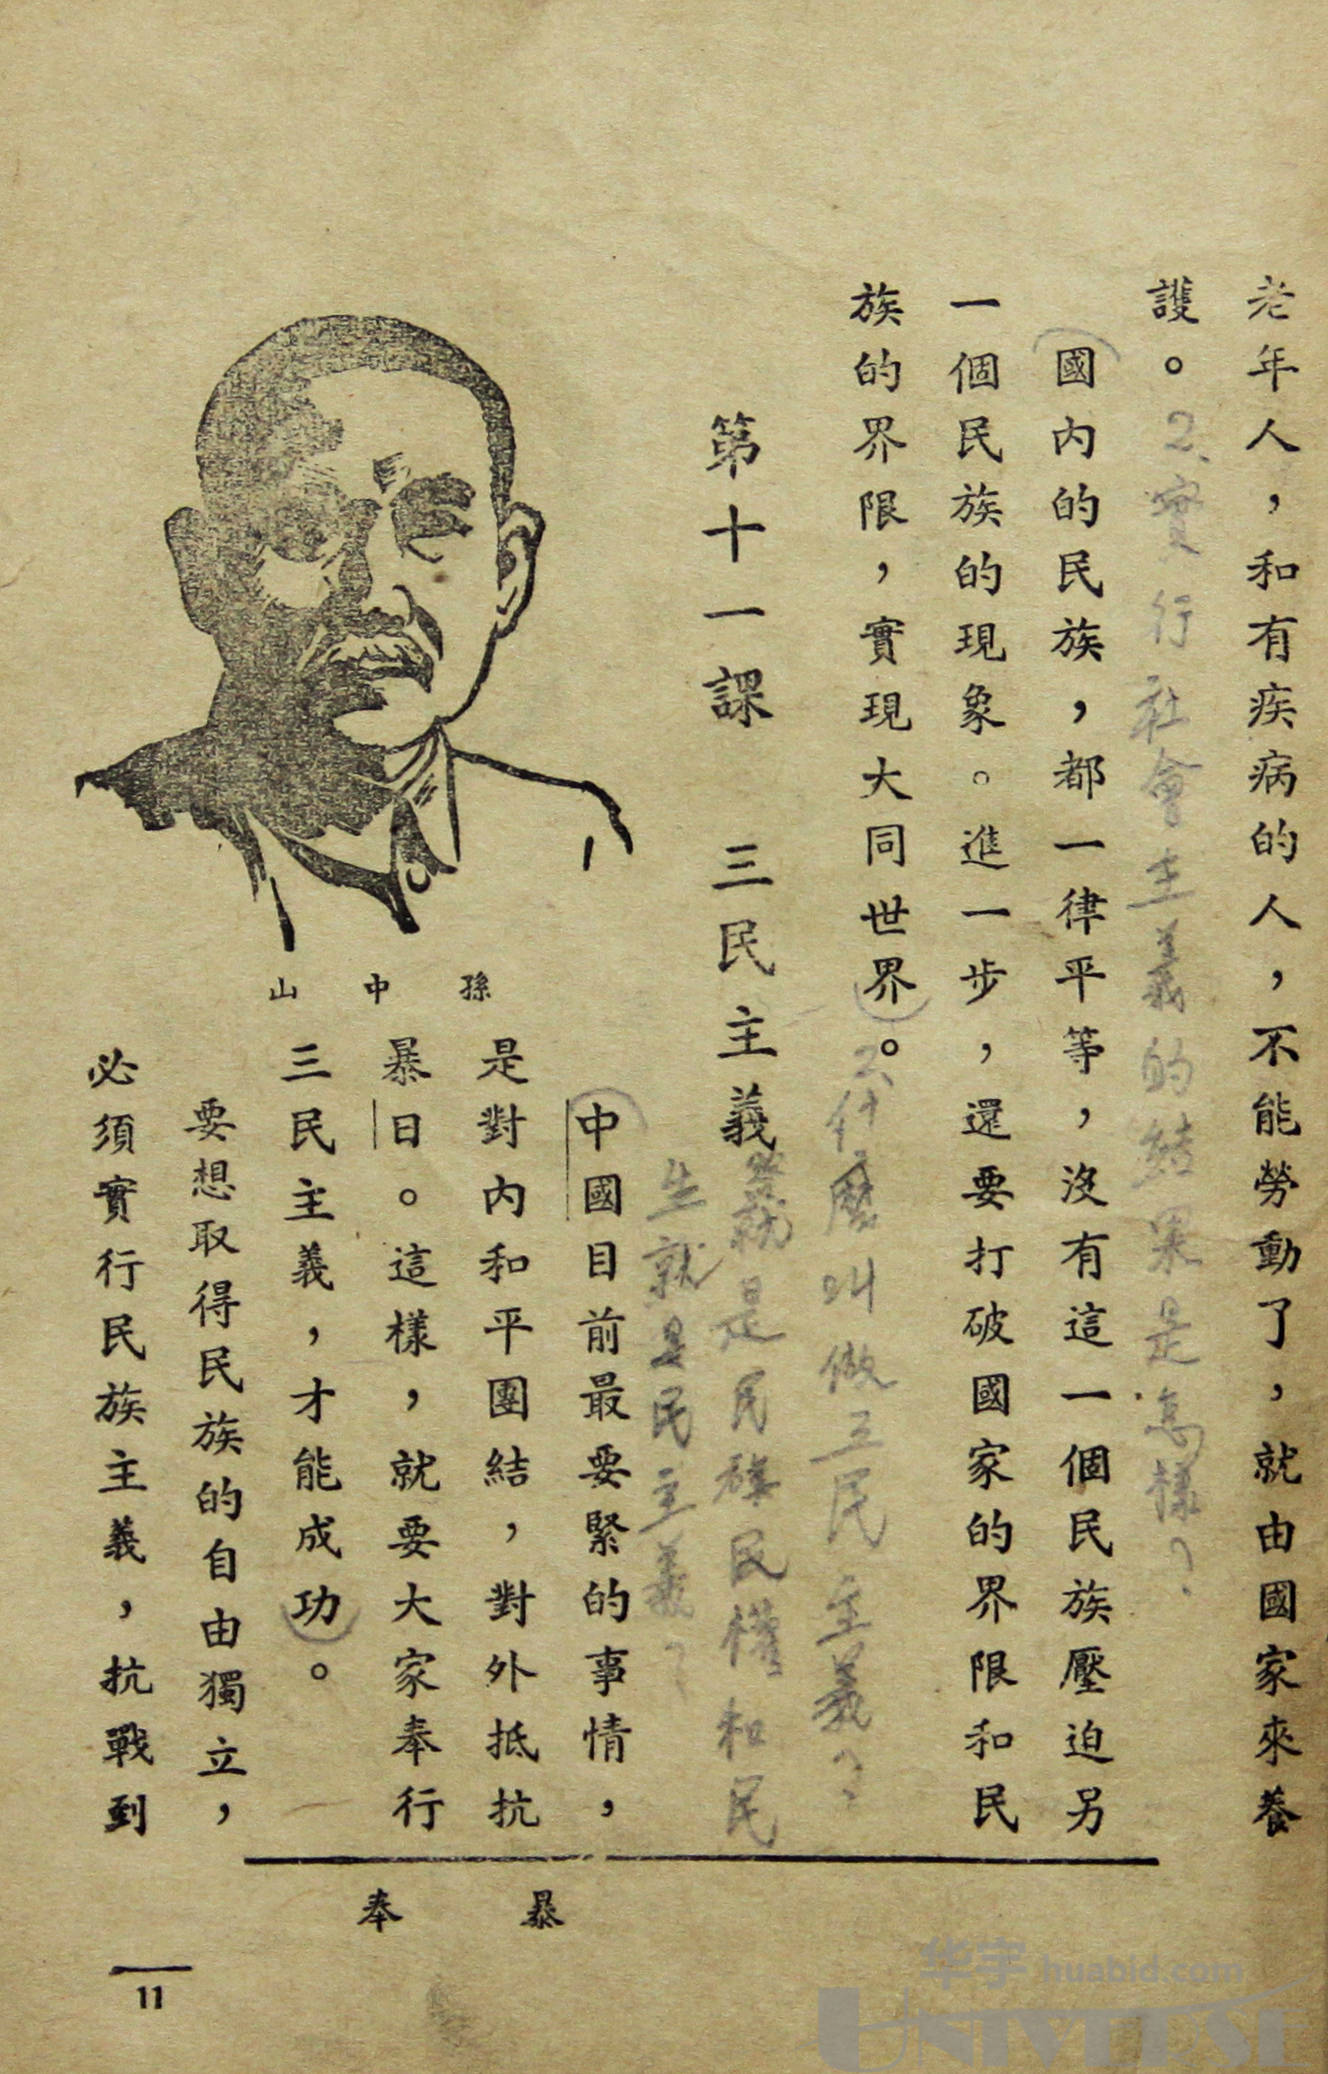 老年人，和有疾病的人，不能勞動了，就由國家來養
護。
2、實行社會主義的結果是怎樣？
國內的民族，都一律平等，沒有這一個民族壓迫另
一個民族的現象。進一步，還要打破國家的界限和民
族的界限，實現大同世界。
2、什麼叫做三民主義？
第十一課 三民主義
就是民族民權和民
生就是民主義？
孫中山
中國目前最要緊的事情，
是對內和平團結，對外抵抗
暴日。這樣，就要大家奉行
三民主義，才能成功。
要想取得民族的自由獨立，
必須實行民族主義，抗戰到
暴 奉
11
华宇 huabid.com
UNIVERSE